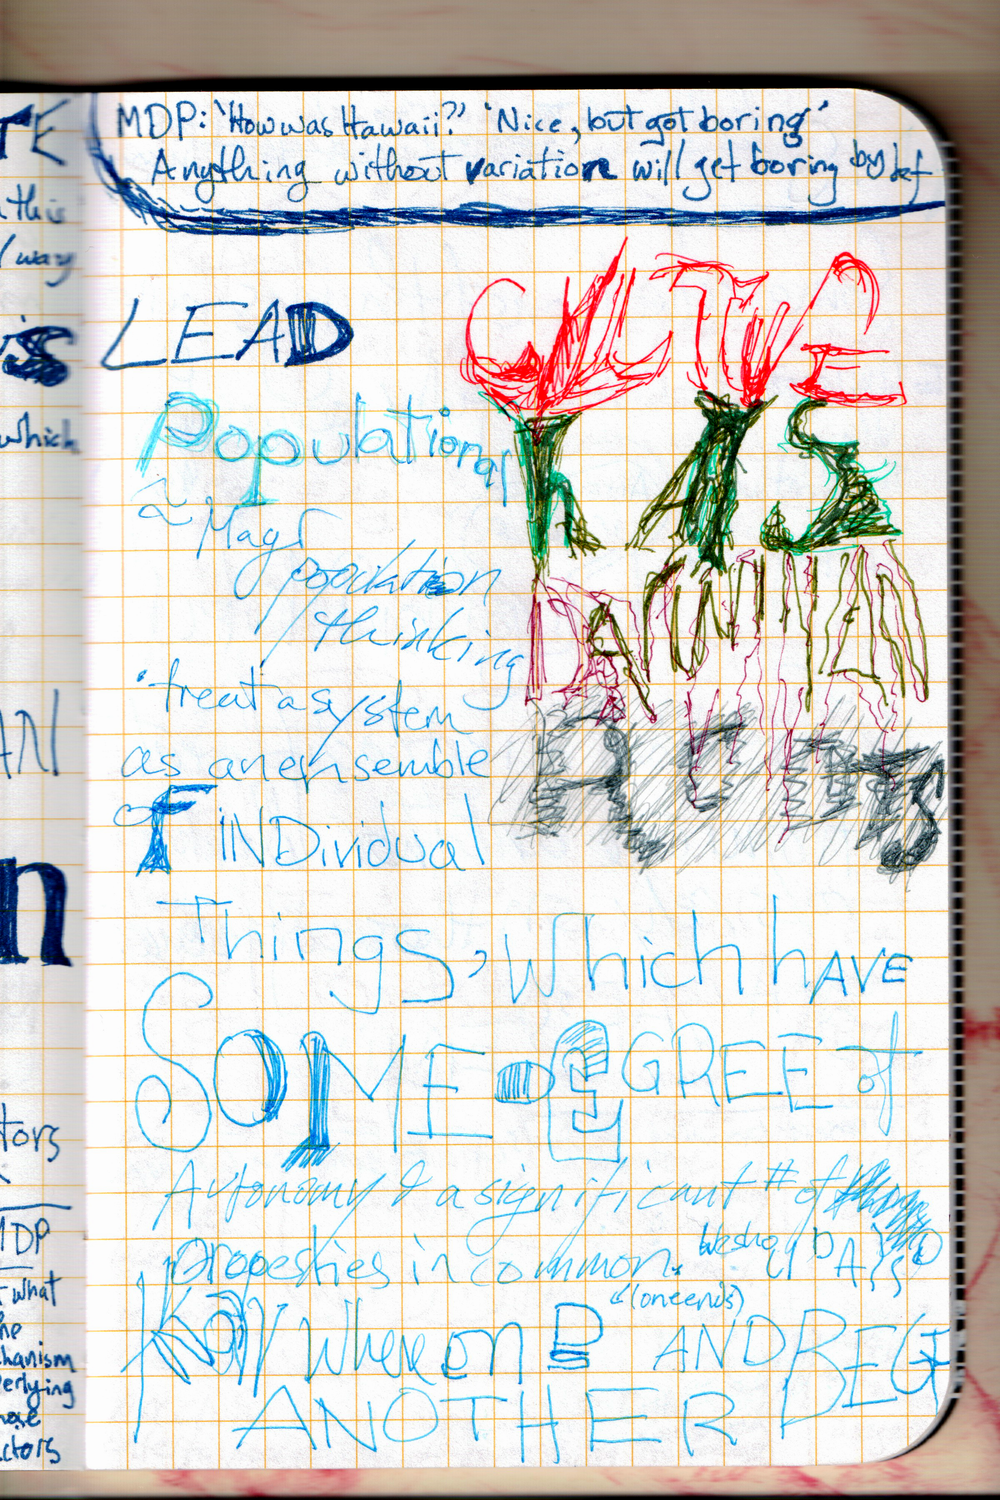 MDP: "How was Hawaii?" 'Nice, but got boring'
Anything without variation will get boring by def
LEAD
CULTURE
HAS
DARWINIAN
ROOTS
Populational
~ Mayr
population
thinking
'treat a system
as an ensemble
of INDividual
Things, which hAVE
SOME DEGREE of
Autonomy & a significant # of
properties in common.
(one ends)
where on AND BEG
ANOTHER
TE
this
way
is
which
AN
n
tors
MDP
what
he
chanism
erlying
hose
ctors